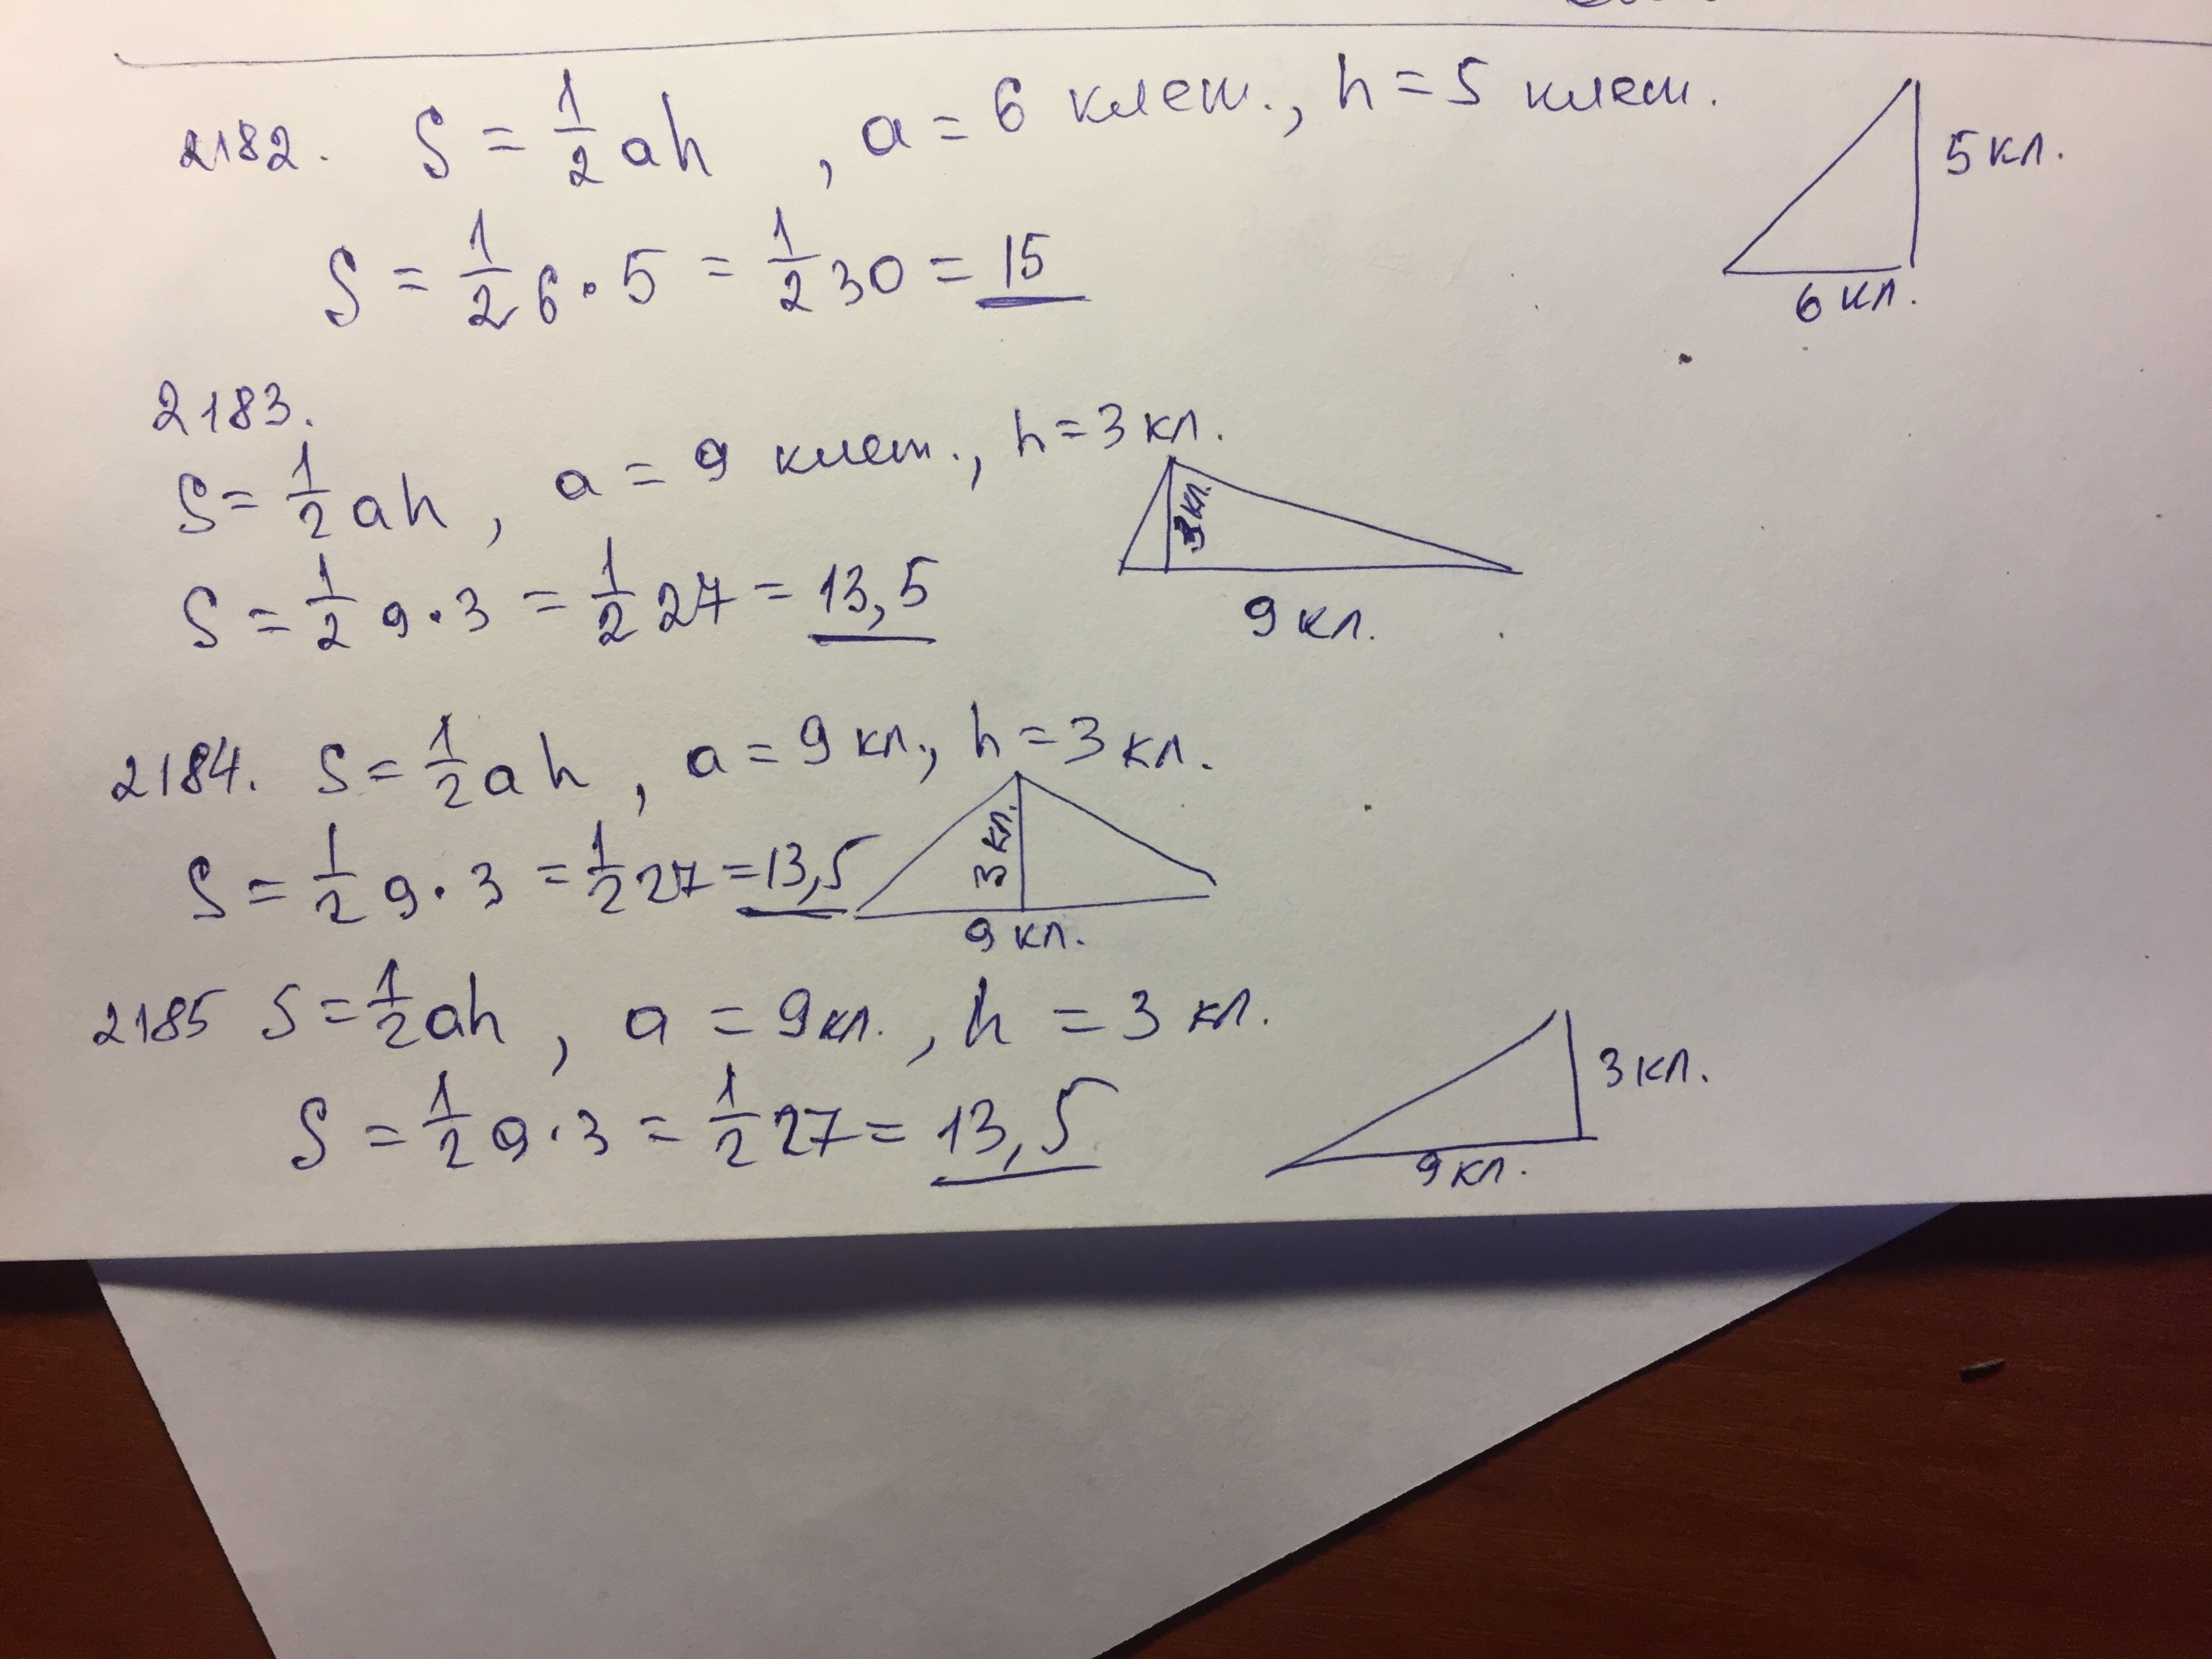 2182. S = 1/2 ah , a = 6 клет., h = 5 клет.
5 кл.
6 кл.
S = 1/2 6 · 5 = 1/2 30 = 15
2183.
S = 1/2 ah , a = 9 клет., h = 3 кл.
3 кл.
9 кл.
S = 1/2 9 · 3 = 1/2 27 = 13,5
2184. S = 1/2 ah , a = 9 кл., h = 3 кл.
3 кл.
9 кл.
S = 1/2 9 · 3 = 1/2 27 = 13,5
2185 S = 1/2 ah , a = 9 кл. , h = 3 кл.
3 кл.
9 кл.
S = 1/2 9 · 3 = 1/2 27 = 13,5